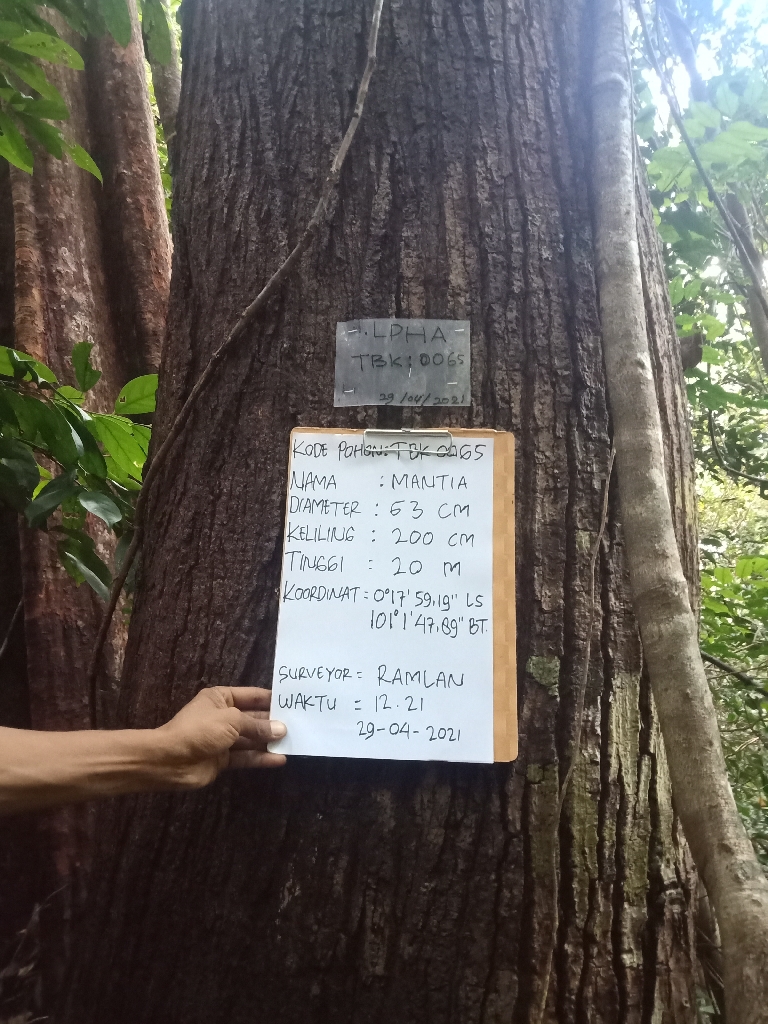 LPHA
TBK: 0065
29/04/2021
KODE POHON: TBK 0065
NAMA : MANTIA
DIAMETER : 63 CM
KELILING : 200 CM
TINGGI : 20 M
KOORDINAT = 0°17'59,19" LS
101°1'47,89" BT.
SURVEYOR = RAMLAN
WAKTU = 12.21
29-04-2021